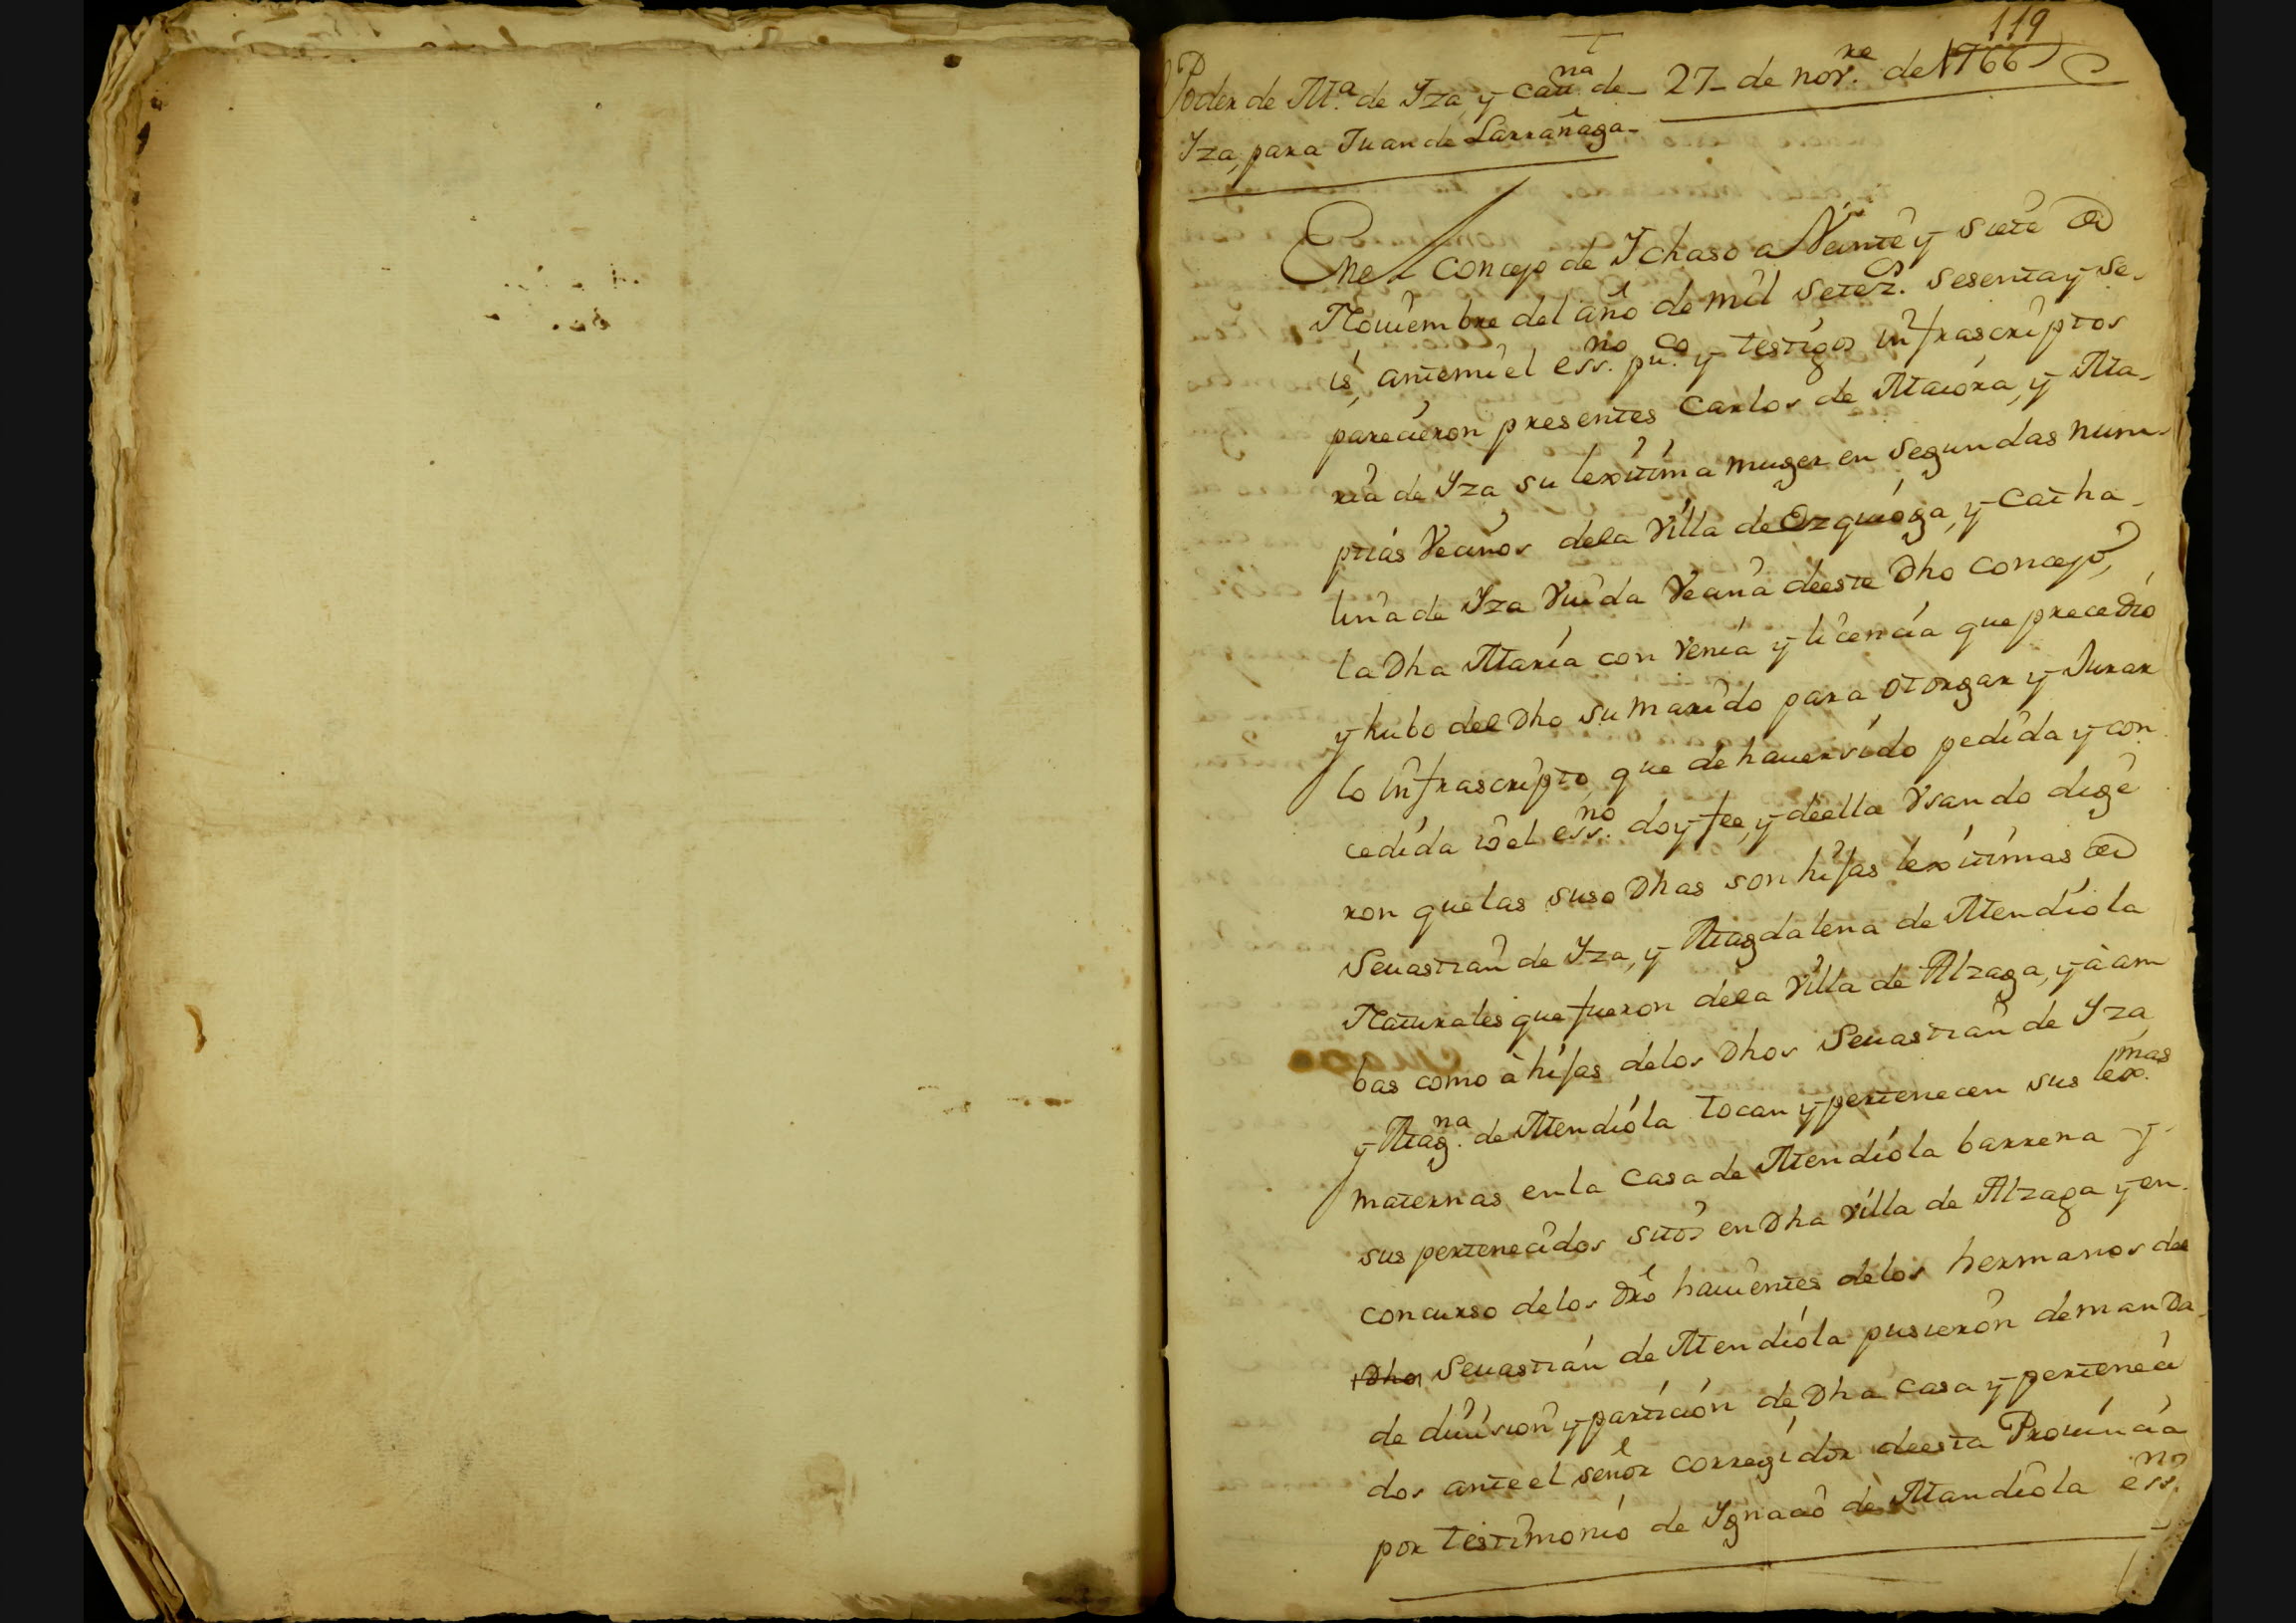 119
Poder de M.ª de Yza, y Cat.na de
27 de nov.re de 1766
Yza, para Juan de Larrañaga
En el Concejo de Ychaso a Veinte y siete de
Nouiembre del año de mil setez.s sesenta y se-
is, ante mi el ess.no pu.co y testigos infrascriptos
parecieron presentes Carlos de Maiora, y Ma-
ria de Yza su lexitima muger en segundas num-
ptias Vecinos dela Villa de Ezquioga, y Catha-
lina de Yza Viuda Vecina deeste Dho Concejo,
la Dha Maria con Venia y licencia que precedio
y hubo del Dho su marido para otorgar y Jurar
lo infrascripto, que de hauer sido pedida y con
cedida io el ess.no doy fee, y deella Vsando dige
ron que las suso Dhas son hijas lexitimas de
Seuastian de Yza, y Magdalena de Mendiola
Naturales que fueron dela Villa de Alzaga, y à am
bas como à hijas delos Dhos Seuastian de Yza,
y Mag.na de Mendiola tocan y pertenecen sus lex.mas
maternas en la Casa de Mendiola barrena y
sus pertenecidos sitos en Dha Villa de Alzaga y en
concurso delos Dro hauientes delos hermanos del
Dho Seuastian de Mendiola pusieron demanda
de diuision y particion de Dha casa y perteneci
dos ante el señor corregidor deesta Prouincia
por testimonio de Ygnacio de Mandiola ess.no